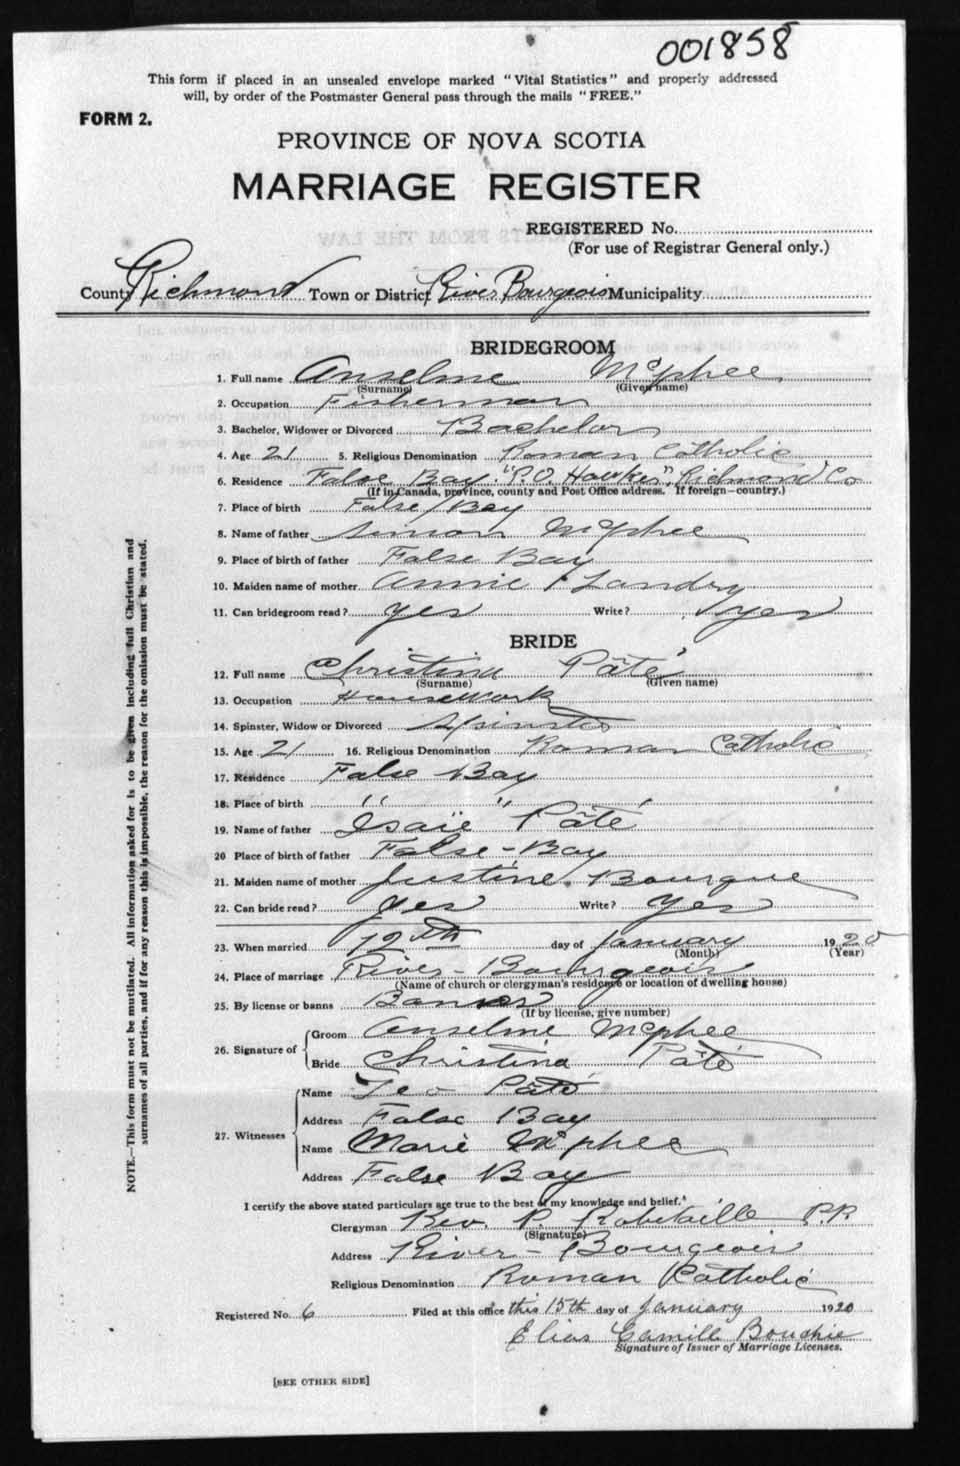 001858
This form if placed in an unsealed envelope marked "Vital Statistics" and properly addressed
will, by order of the Postmaster General pass through the mails "FREE."
FORM 2.
PROVINCE OF NOVA SCOTIA
MARRIAGE REGISTER
REGISTERED No.
(For use of Registrar General only.)
County Richmond Town or District River Bourgeois Municipality
BRIDEGROOM
1. Full name Anselme McPhee
(Surname) (Given name)
2. Occupation Fisherman
3. Bachelor, Widower or Divorced Bachelor
4. Age 21 5. Religious Denomination Roman Catholic
6. Residence False Bay "P.O. Hawker" Richmond Co
(If in Canada, province, county and Post Office address. If foreign—country.)
7. Place of birth False Bay
8. Name of father Simon McPhee
9. Place of birth of father False Bay
10. Maiden name of mother Annie Landry
11. Can bridegroom read? yes Write? yes
BRIDE
12. Full name Christina Pâté
(Surname) (Given name)
13. Occupation Housework
14. Spinster, Widow or Divorced Spinster
15. Age 21 16. Religious Denomination Roman Catholic
17. Residence False Bay
18. Place of birth " "
19. Name of father Isaïe Pâté
20 Place of birth of father False-Bay
21. Maiden name of mother Justine Bourque
22. Can bride read? yes Write? yes
23. When married 12th day of January 1920
(Month) (Year)
24. Place of marriage River-Bourgeois
(Name of church or clergyman's residence or location of dwelling house)
25. By license or banns Banns
(If by license, give number)
26. Signature of Groom Anselme McPhee
Bride Christina Pâté
27. Witnesses Name Leo Pâté
Address False Bay
Name Marie McPhee
Address False Bay
I certify the above stated particulars are true to the best of my knowledge and belief.
Clergyman Rev. R. Robitaille P.P.
(Signature)
Address River-Bourgeois
Religious Denomination Roman Catholic
Registered No. 6 Filed at this office this 15th day of January 1920
Elias Camille Boudrie
Signature of Issuer of Marriage Licenses.
[SEE OTHER SIDE]
NOTE.—This form must not be mutilated. All information asked for is to be given including full Christian and
surnames of all parties, and if for any reason this is impossible, the reason for the omission must be stated.